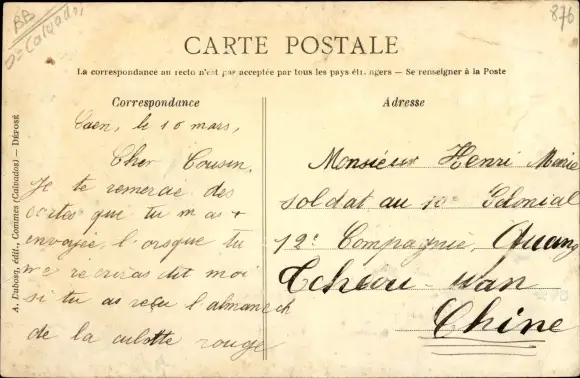 BB
Dt Calvados
876
CARTE POSTALE
La correspondance au recto n'est pas acceptée par tous les pays étrangers — Se renseigner à la Poste
Correspondance
Caen, le 10 mars,
Cher Cousin,
Je te remercie des
cartes que tu m as
envoyée, l'orsque tu
me récriras dit moi
si tu as reçu l'almanach
de la culotte rouge
Adresse
Monsieur Henri Marie
soldat au 10e Colonial
12e Compagnie, Quang
Tchéou-wan
Chine
A. Dubosq, édit., Commes (Calvados) — DÉPOSÉ